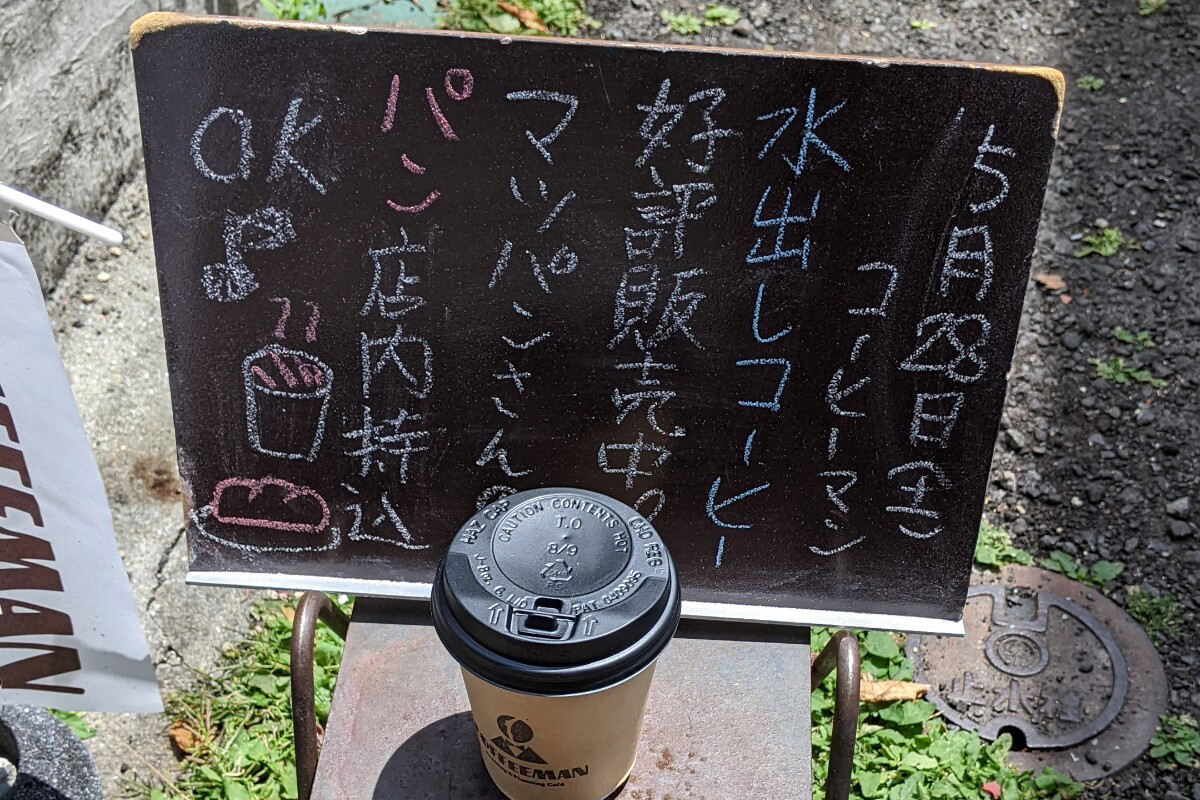 5月28日(土)
コーヒーマン
水出しコーヒー
好評販売中の
マツパンさん
パン店内持込
OK♪
CAUTION CONTENTS HOT
T.O
8/9
PAT
COFFEEMAN
止水